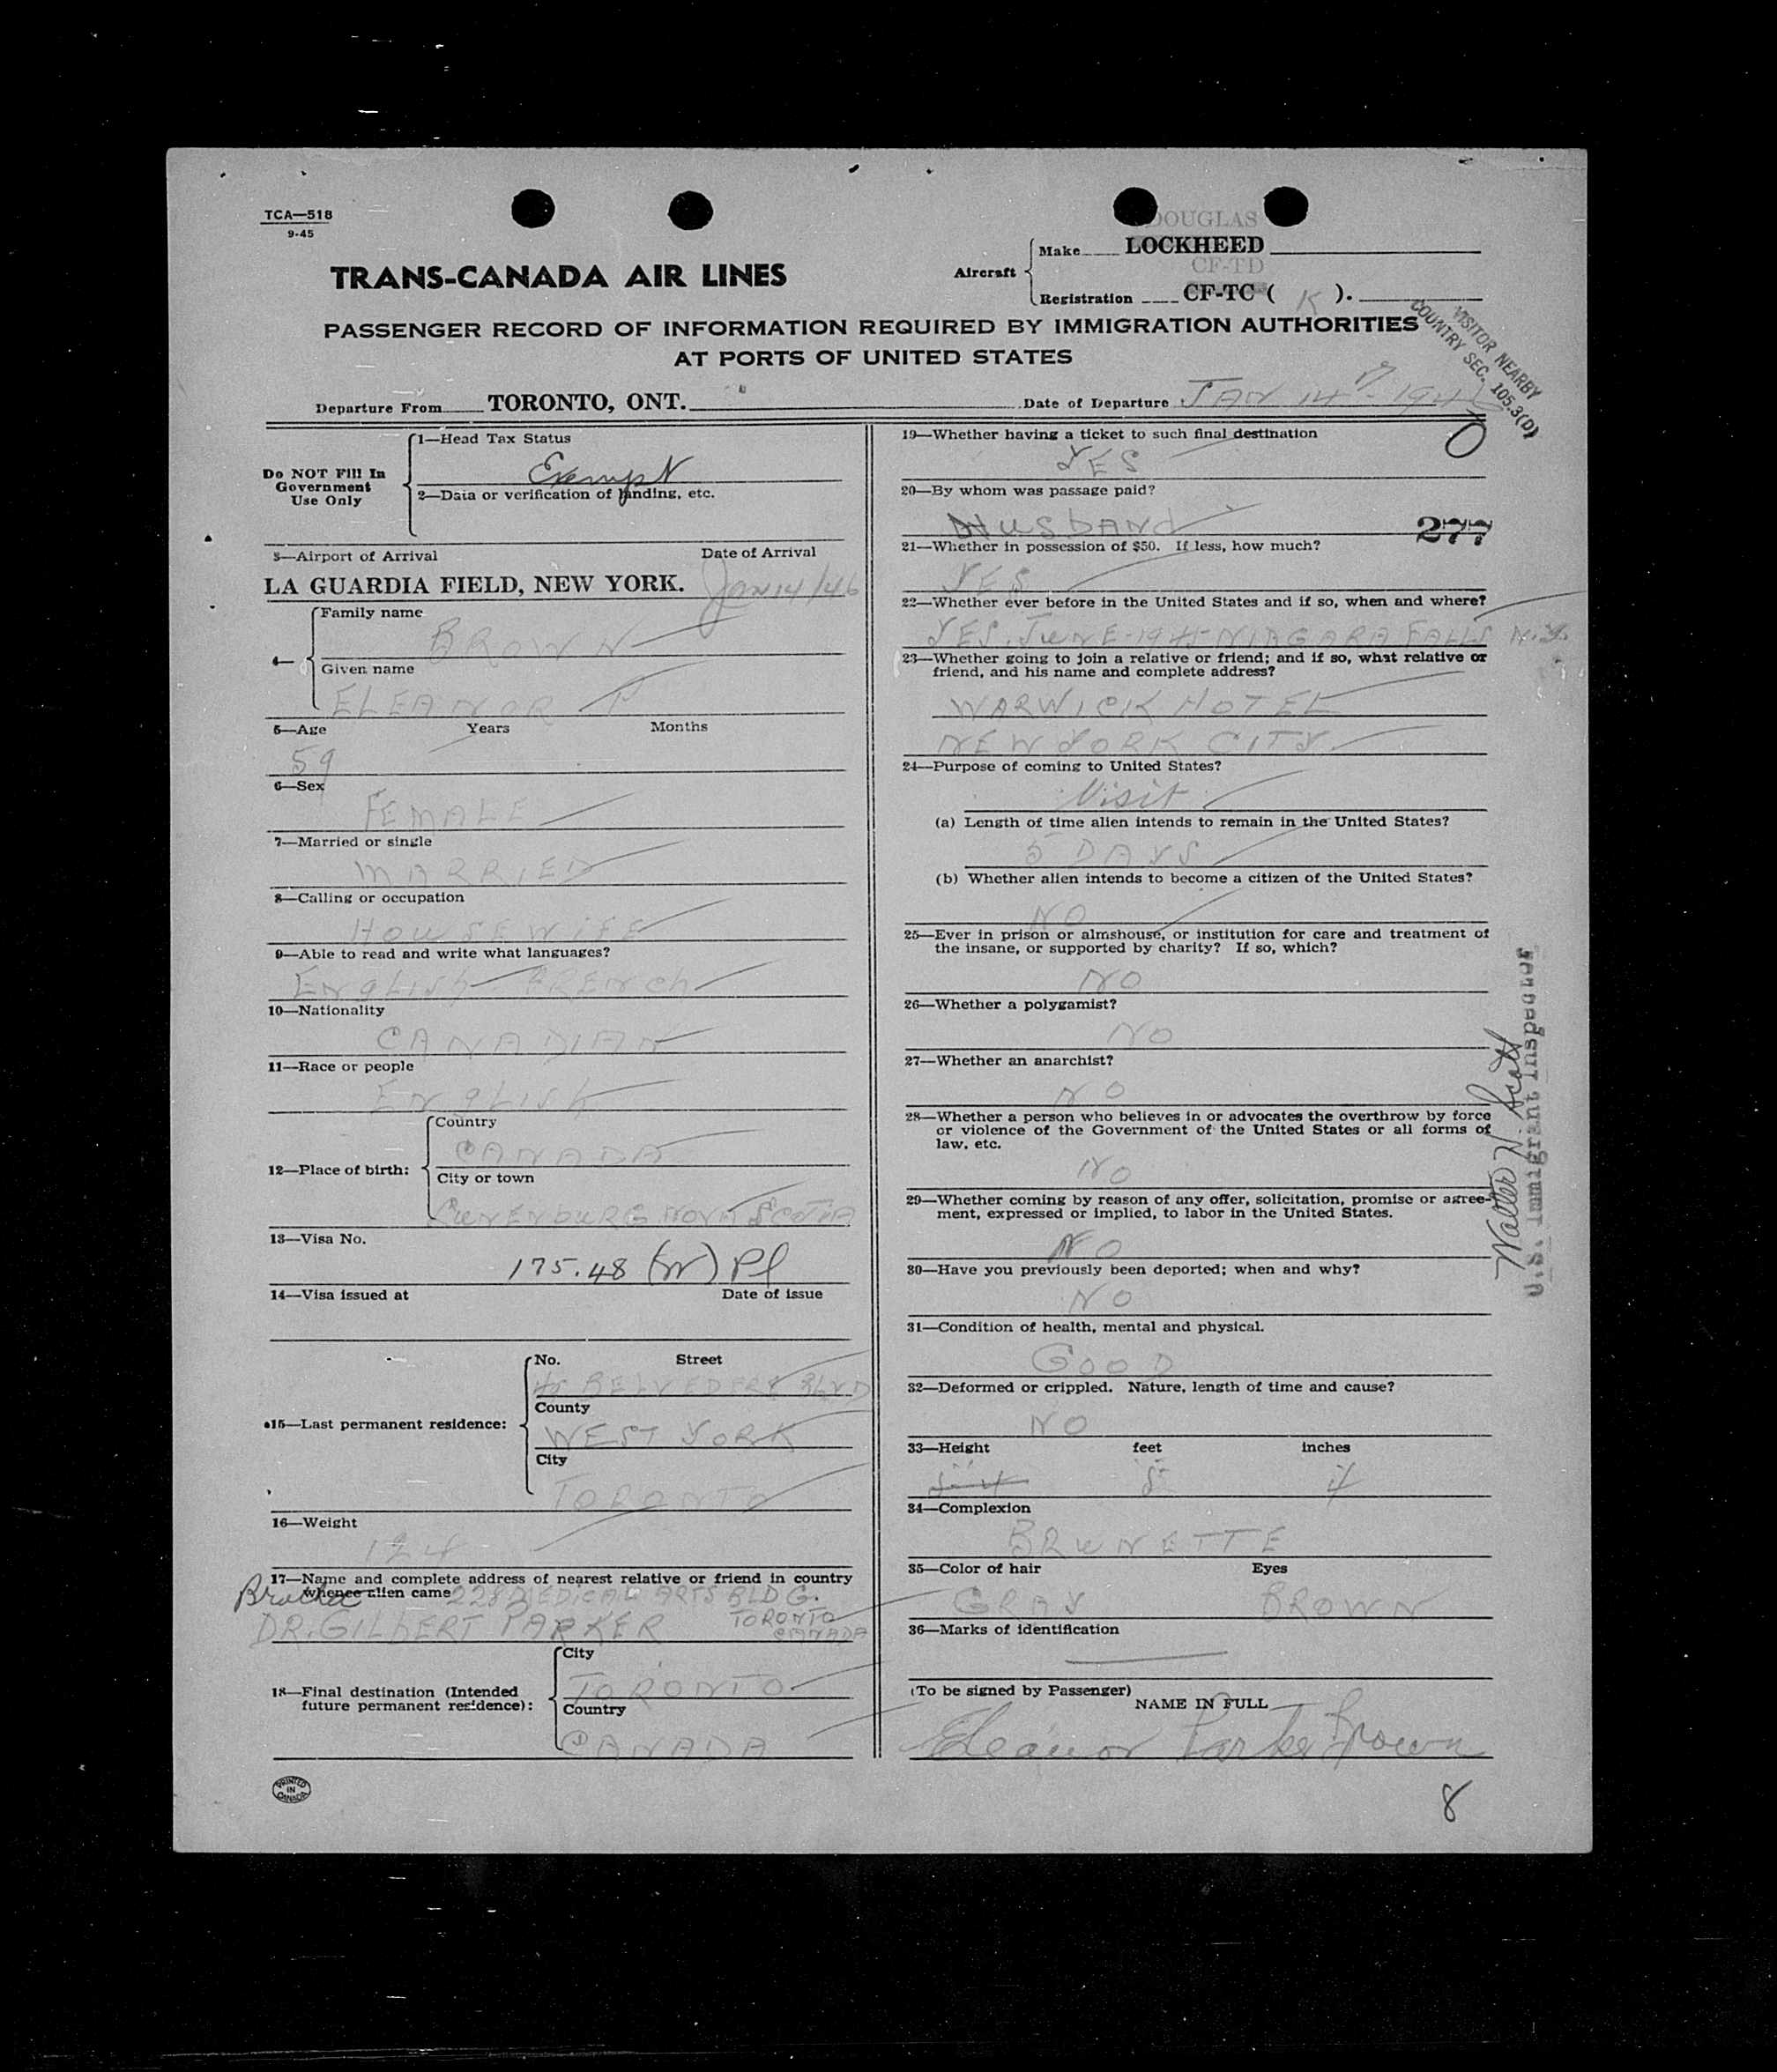 TCA—518
9-45
TRANS-CANADA AIR LINES
DOUGLAS
Aircraft
Make LOCKHEED
CF-TD
Registration CF-TC ( K ).
PASSENGER RECORD OF INFORMATION REQUIRED BY IMMIGRATION AUTHORITIES
AT PORTS OF UNITED STATES
VISITOR NEARBY
COUNTRY SEC. 105.3(D)
Departure From TORONTO, ONT. Date of Departure JAN 14th - 1946
Do NOT Fill In
Government
Use Only
1—Head Tax Status
Exempt
2—Data or verification of landing, etc.
3—Airport of Arrival Date of Arrival
LA GUARDIA FIELD, NEW YORK. Jan 14/46
4—
Family name
BROWN
Given name
ELEANOR P
5—Age Years Months
59
6—Sex
FEMALE
7—Married or single
MARRIED
8—Calling or occupation
HOUSEWIFE
9—Able to read and write what languages?
ENGLISH - FRENCH
10—Nationality
CANADIAN
11—Race or people
ENGLISH
12—Place of birth:
Country
CANADA
City or town
LUNENBURG NOVA SCOTIA
13—Visa No.
175.48 (W) Pl
14—Visa issued at Date of issue
15—Last permanent residence:
No. Street
BELVEDERE BLVD
County
WEST YORK
City
TORONTO
16—Weight
124
17—Name and complete address of nearest relative or friend in country
whence alien came 228 MEDICAL ARTS BLDG.
Brother
DR. GILBERT PARKER TORONTO
CANADA
18—Final destination (Intended
future permanent residence):
City
TORONTO
Country
CANADA
PRINTED
IN
CANADA
19—Whether having a ticket to such final destination
YES
20—By whom was passage paid?
HUSBAND
277
21—Whether in possession of $50. If less, how much?
YES
22—Whether ever before in the United States and if so, when and where?
YES. JUNE - NIAGARA FALLS N.Y.
23—Whether going to join a relative or friend; and if so, what relative or
friend, and his name and complete address?
WARWICK HOTEL
NEW YORK CITY
24—Purpose of coming to United States?
Visit
(a) Length of time alien intends to remain in the United States?
5 DAYS
(b) Whether alien intends to become a citizen of the United States?
NO
25—Ever in prison or almshouse, or institution for care and treatment of
the insane, or supported by charity? If so, which?
NO
26—Whether a polygamist?
NO
27—Whether an anarchist?
NO
28—Whether a person who believes in or advocates the overthrow by force
or violence of the Government of the United States or all forms of
law, etc.
NO
29—Whether coming by reason of any offer, solicitation, promise or agree-
ment, expressed or implied, to labor in the United States.
NO
30—Have you previously been deported; when and why?
NO
31—Condition of health, mental and physical.
GOOD
32—Deformed or crippled. Nature, length of time and cause?
NO
33—Height feet inches
5-4 5 4
34—Complexion
BRUNETTE
35—Color of hair Eyes
GRAY BROWN
36—Marks of identification
(To be signed by Passenger)
NAME IN FULL
Eleanor Parker Brown
8
Walter W. Scott
U.S. Immigrant Inspector